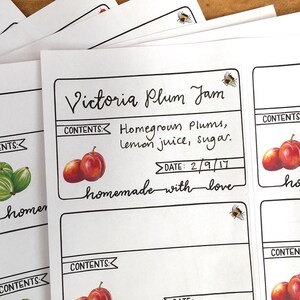 Victoria Plum Jam
CONTENTS:
Homegrown Plums,
lemon juice, sugar.
DATE: 2/9/17
homemade with love
CONTENTS:
DATE:
CONTENTS:
CONTENTS:
home